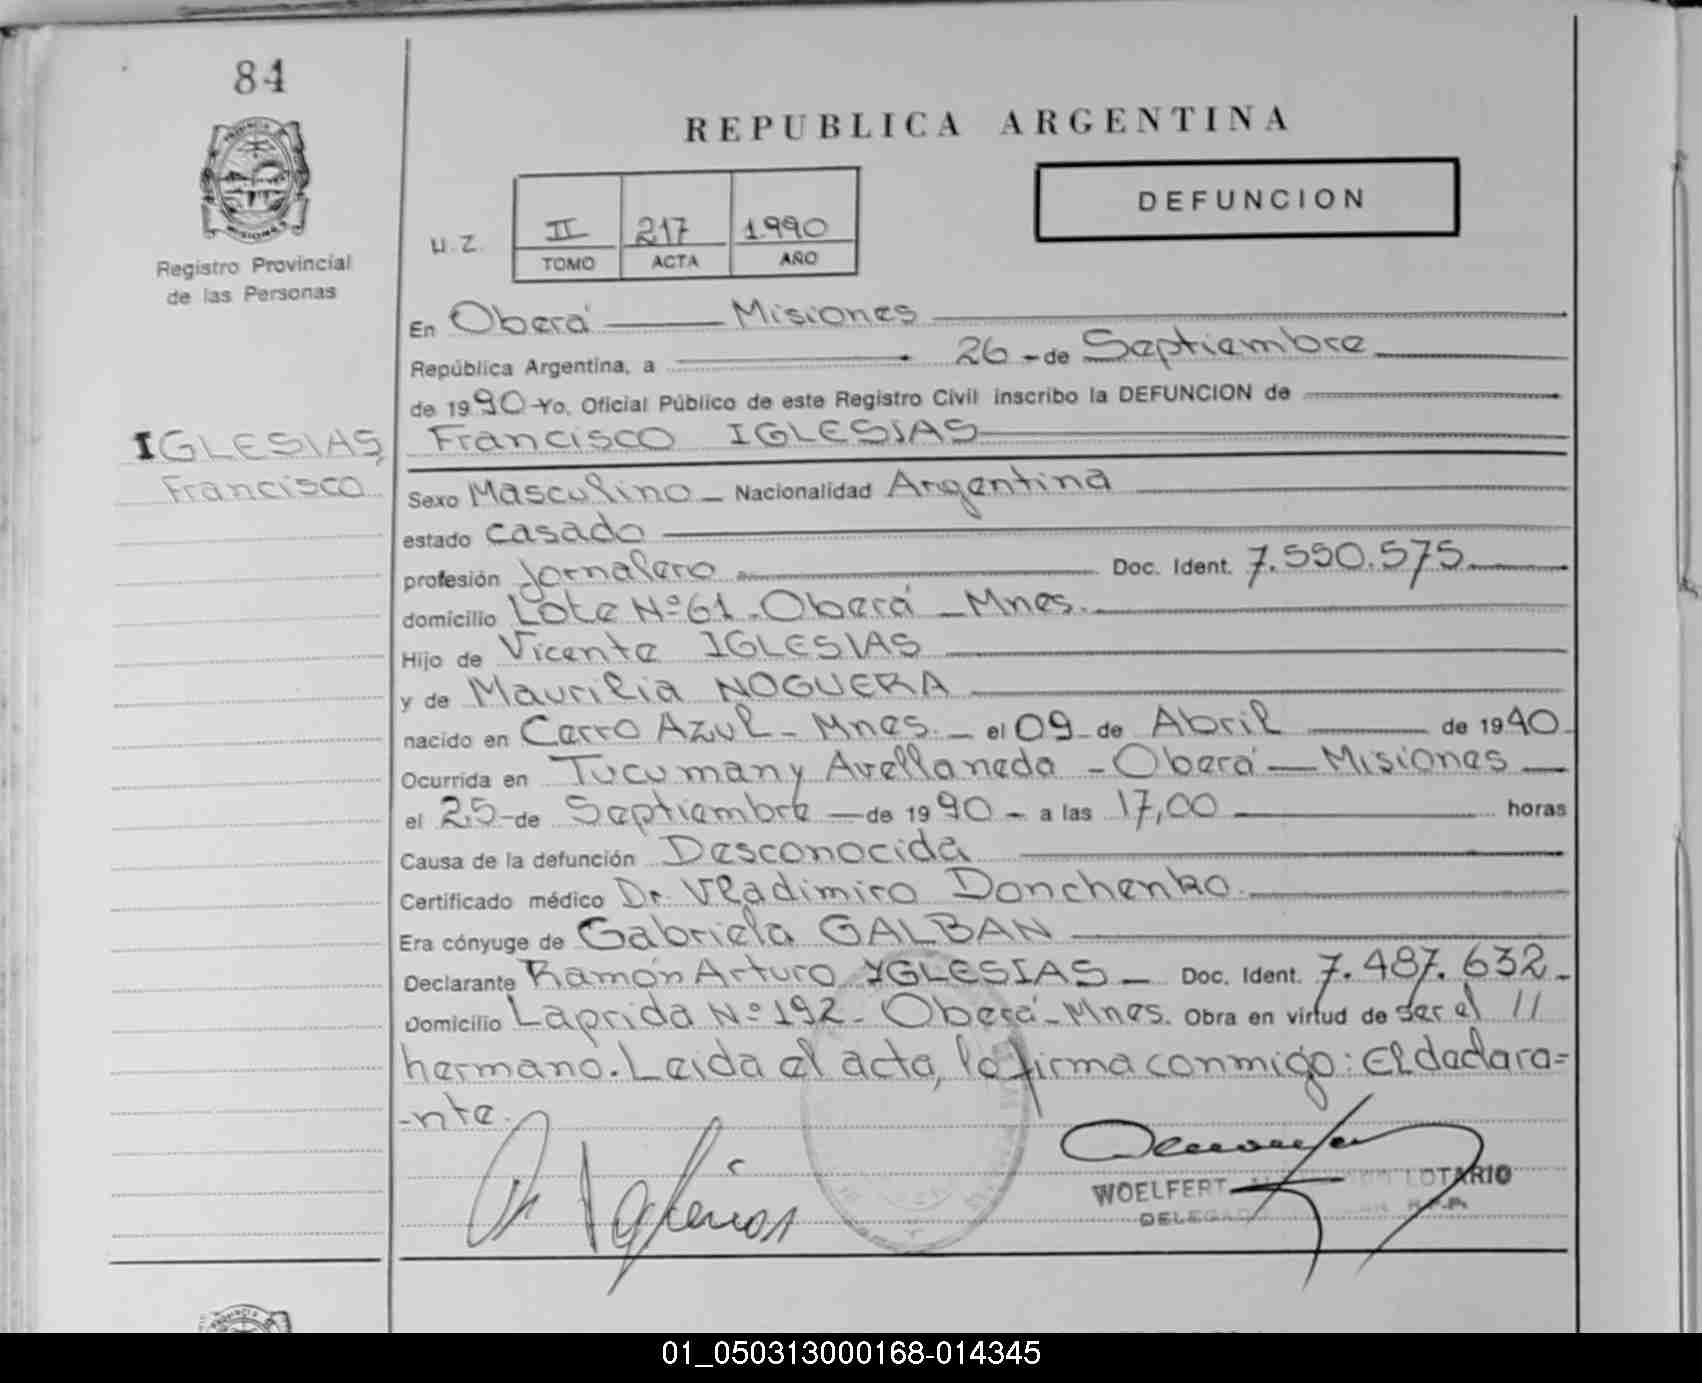 84
REPUBLICA ARGENTINA
DEFUNCION
PROVINCIA
MISIONES
Registro Provincial
de las Personas
U.Z.
II 217 1990
TOMO ACTA AÑO
En Oberá Misiones
República Argentina, a 26 - de Septiembre
de 1990 - Yo, Oficial Público de este Registro Civil inscribo la DEFUNCION de
IGLESIAS,
Francisco
Francisco IGLESIAS
Sexo Masculino - Nacionalidad Argentina
estado casado
profesión Jornalero Doc. Ident. 7.550.575
domicilio Lote Nº 61 - Oberá - Mnes.
Hijo de Vicente IGLESIAS
y de Maurilia NOGUERA
nacido en Cerro Azul - Mnes. - el 09 - de Abril de 1940
Ocurrida en Tucuman y Avellaneda - Oberá - Misiones
el 25 - de Septiembre - de 1990 - a las 17,00 horas
Causa de la defunción Desconocida
Certificado médico Dr. Vladimiro Donchenko.
Era cónyuge de Gabriela GALBAN
Declarante Ramón Arturo YGLESIAS - Doc. Ident. 7.487.632 -
Domicilio Laprida Nº 192 - Oberá - Mnes. Obra en virtud de ser el //
hermano. Leida el acta, la firma conmigo: El declara=
-nte.
WOELFERT LOTARIO
01_050313000168-014345